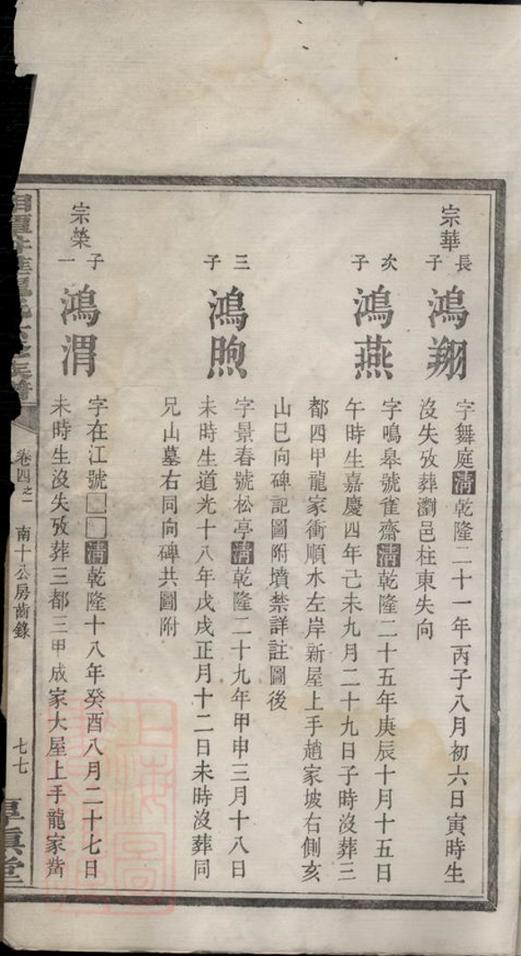 宗華
長子
鴻翔
字舞庭清乾隆二十一年丙子八月初六日寅時生
沒失攷葬瀏邑柱東失向
次子
鴻燕
字鳴皋號雀齋清乾隆二十五年庚辰十月十五日
午時生嘉慶四年己未九月二十九日子時沒葬三
都四甲龍家衝順水左岸新屋上手趙家坡右側亥
山巳向碑記圖附墳禁詳註圖後
三子
鴻煦
字景春號松亭清乾隆二十九年甲申三月十八日
未時生道光十八年戊戌正月十二日未時沒葬同
兄山墓右同向碑共圖附
宗榮
一子
鴻渭
字在江號□□清乾隆十八年癸酉八月二十七日
未時生沒失攷葬三都三甲成家大屋上手龍家觜
卷四之一
南十公房齒錄
七七